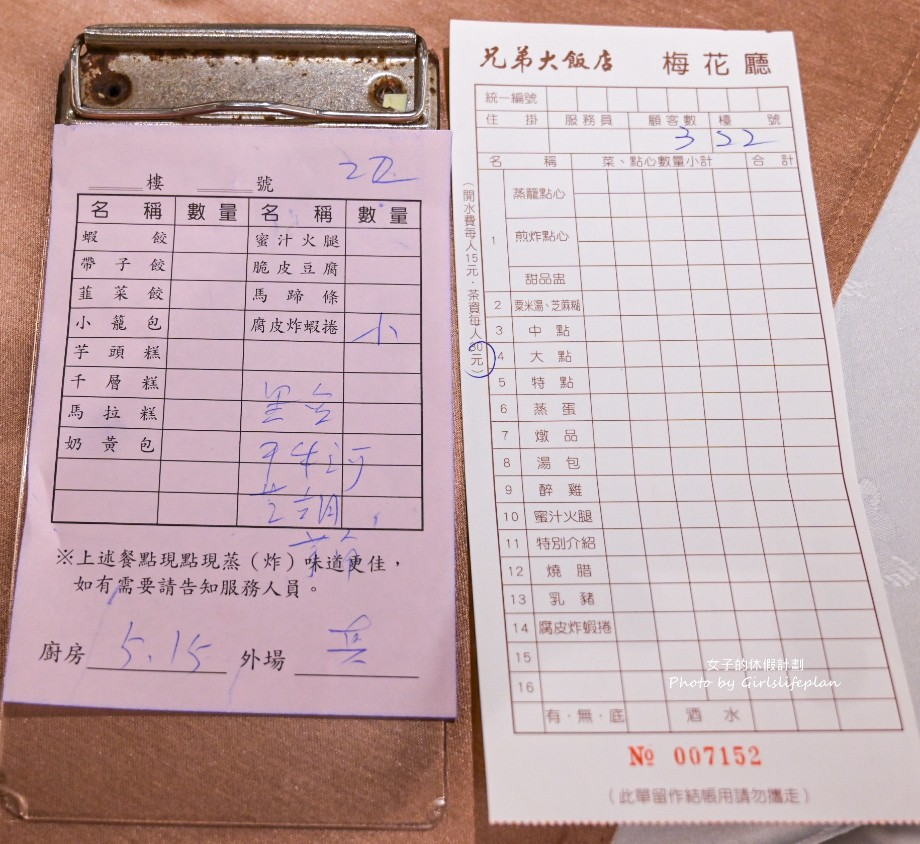 樓 號
名稱 數量 名稱 數量
蝦餃 蜜汁火腿
帶子餃 脆皮豆腐
韮菜餃 馬蹄條
小籠包 腐皮炸蝦捲 小
芋頭糕
千層糕
馬拉糕
奶黃包
※上述餐點現點現蒸（炸）味道更佳，
如有需要請告知服務人員。
廚房 5.15 外場
兄弟大飯店 梅花廳
統一編號
住掛 服務員 顧客數 檯號
3 522
名稱 菜、點心數量小計 合計
（開水費每人15元．茶資每人30元）
1 蒸籠點心
煎炸點心
甜品盅
2 粟米湯、芝麻糊
3 中點
4 大點
5 特點
6 蒸蛋
7 燉品
8 湯包
9 醉雞
10 蜜汁火腿
11 特別介紹
12 燒腊
13 乳豬
14 腐皮炸蝦捲
15
16
有．無．底 酒水
女子的休假計劃
Photo by Girlslifeplan
№ 007152
（此單留作結帳用請勿攜走）